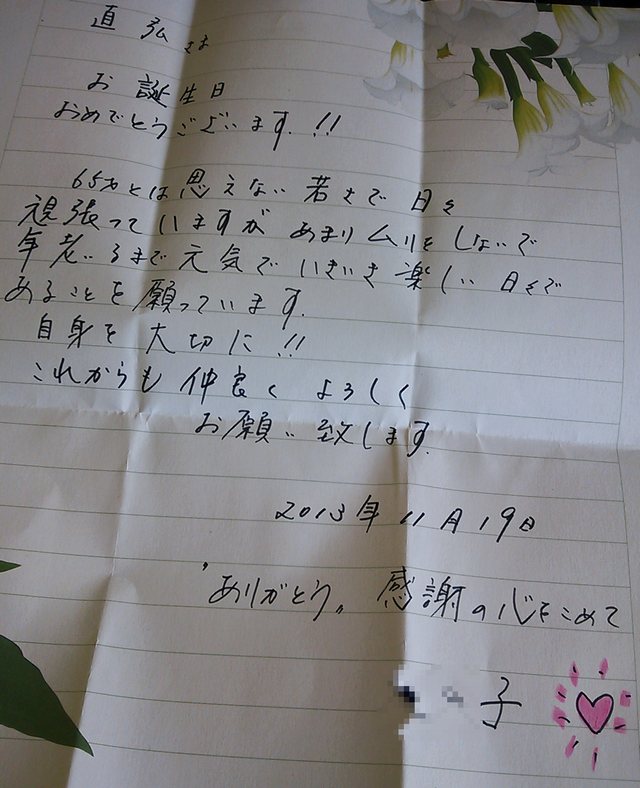 直弘さま
お誕生日
おめでとうございます.!!
65才とは思えない若さで日々
頑張っていますがあまりムリをしないで
年老いるまで元気でいきいき楽しい日々で
あることを願っています.
自身を大切に!!
これからも仲良くよろしく
お願い致します.
2013年11月19日
"ありがとう"感謝の心をこめて
子